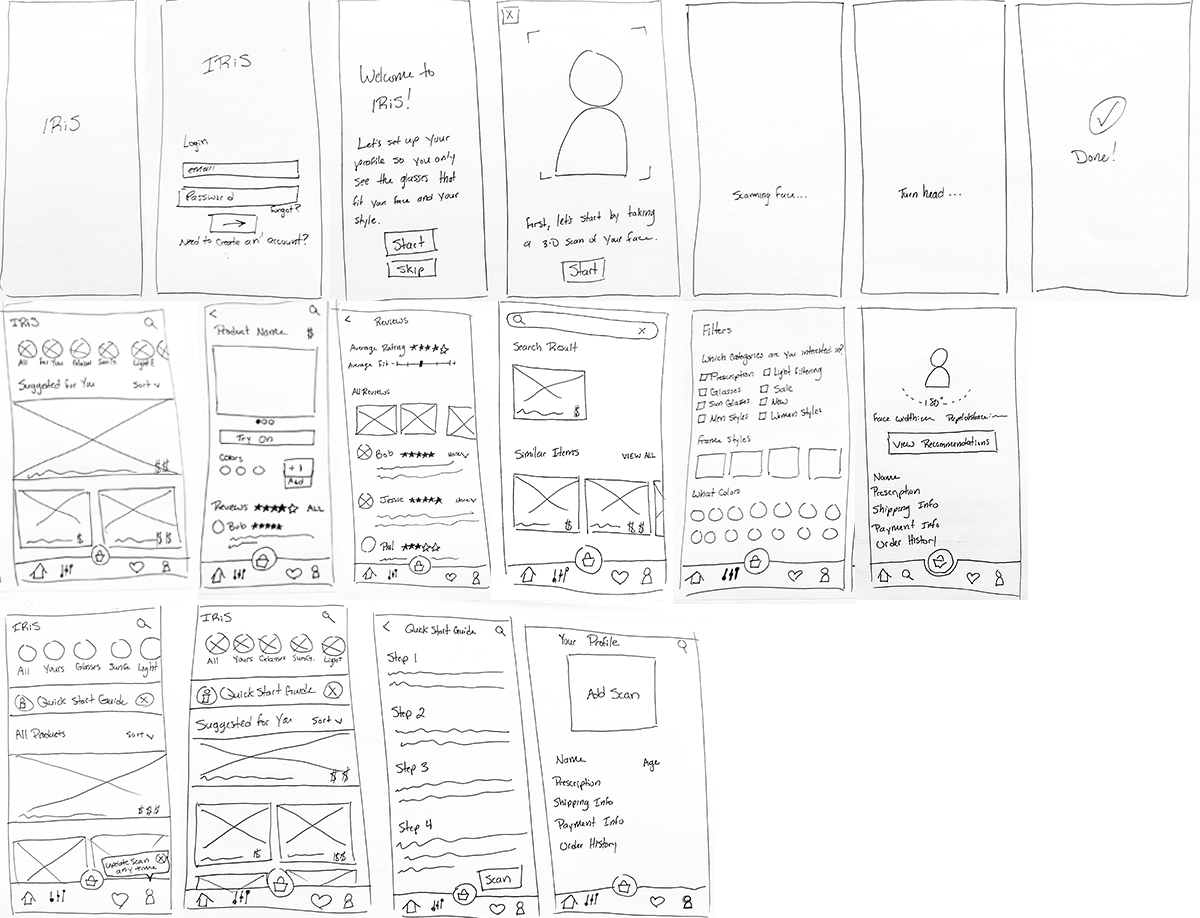 IRiS
IRiS
Login
email
Password
Forgot?
Need to create an account?
Welcome to
IRiS!
Let's set up your
profile so you only
see the glasses that
fit your face and your
style.
Start
Skip
X
First, let's start by taking
a 3-D scan of your face.
Start
Scanning face...
Turn head...
Done!
IRiS
All For You Glasses SunG. Light F
Suggested for You Sort
$$
$ $$
<
Product Name $
Try On
Colors
+1
Add
Reviews ALL
Bob
<
Reviews
Average Rating
Average Fit
All Reviews
Bob More
Jessie More
Phil
X
Search Result
$
Similar Items VIEW ALL
$ $$
Filters
Which Categories are you interested in?
Prescription Light filtering
Glasses Sale
Sun Glasses New
Men Styles Women Styles
Frame Styles
What Colors
180°
Face width:
View Recommendations
Name
Prescription
Shipping Info
Payment Info
Order History
IRiS
All Yours Glasses SunG. Light
Quick Start Guide X
All Products Sort
$$$
Update Scan X
any time
IRiS
All Yours Glasses SunG. Light
Quick Start Guide X
Suggested for You Sort
$$
$ $$
< Quick Start Guide
Step 1
Step 2
Step 3
Step 4
Scan
Your Profile
Add Scan
Name Age
Prescription
Shipping Info
Payment Info
Order History